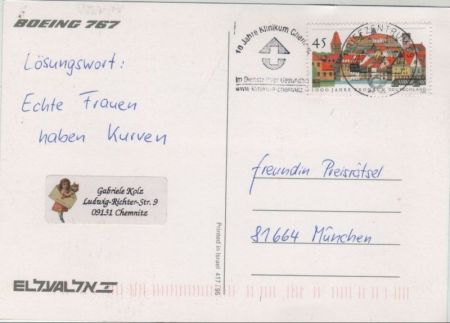 BOEING 767
Lösungswort:
Echte Frauen
haben Kurven
Gabriele Kolz
Ludwig-Richter-Str. 9
09131 Chemnitz
EL AL אל על
Printed in Israel 417/96
10 Jahre Klinikum Chemnitz
Im Dienste Ihrer Gesundheit
www.klinikum-chemnitz
BRIEFZENTRUM
45
1000 JAHRE KRONACH
DEUTSCHLAND
freundin Preisrätsel
81664 München